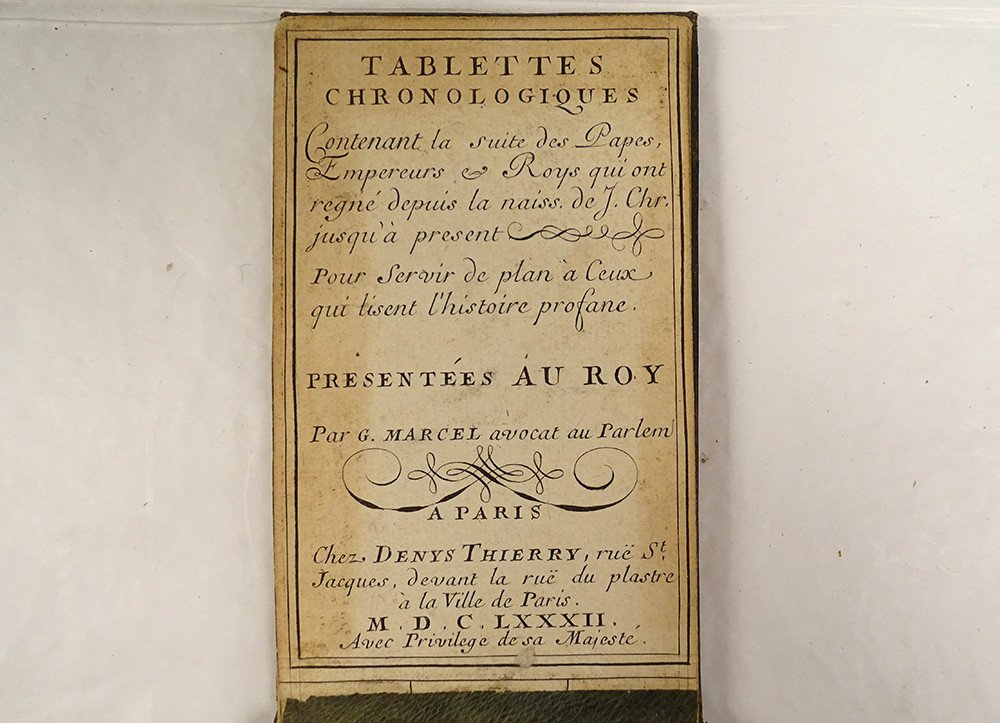 TABLETTES
CHRONOLOGIQUES
Contenant la suite des Papes,
Empereurs & Roys qui ont
regné depuis la naiss. de J. Chr.
jusqu'à present
Pour Servir de plan à Ceux
qui lisent l'histoire profane.
PRESENTÉES AU ROY
Par G. MARCEL avocat au Parlem
A PARIS
Chez DENYS THIERRY, ruë St.
Jacques, devant la ruë du plastre
a la Ville de Paris.
M. D. C. LXXXII.
Avec Privilege de sa Majesté.